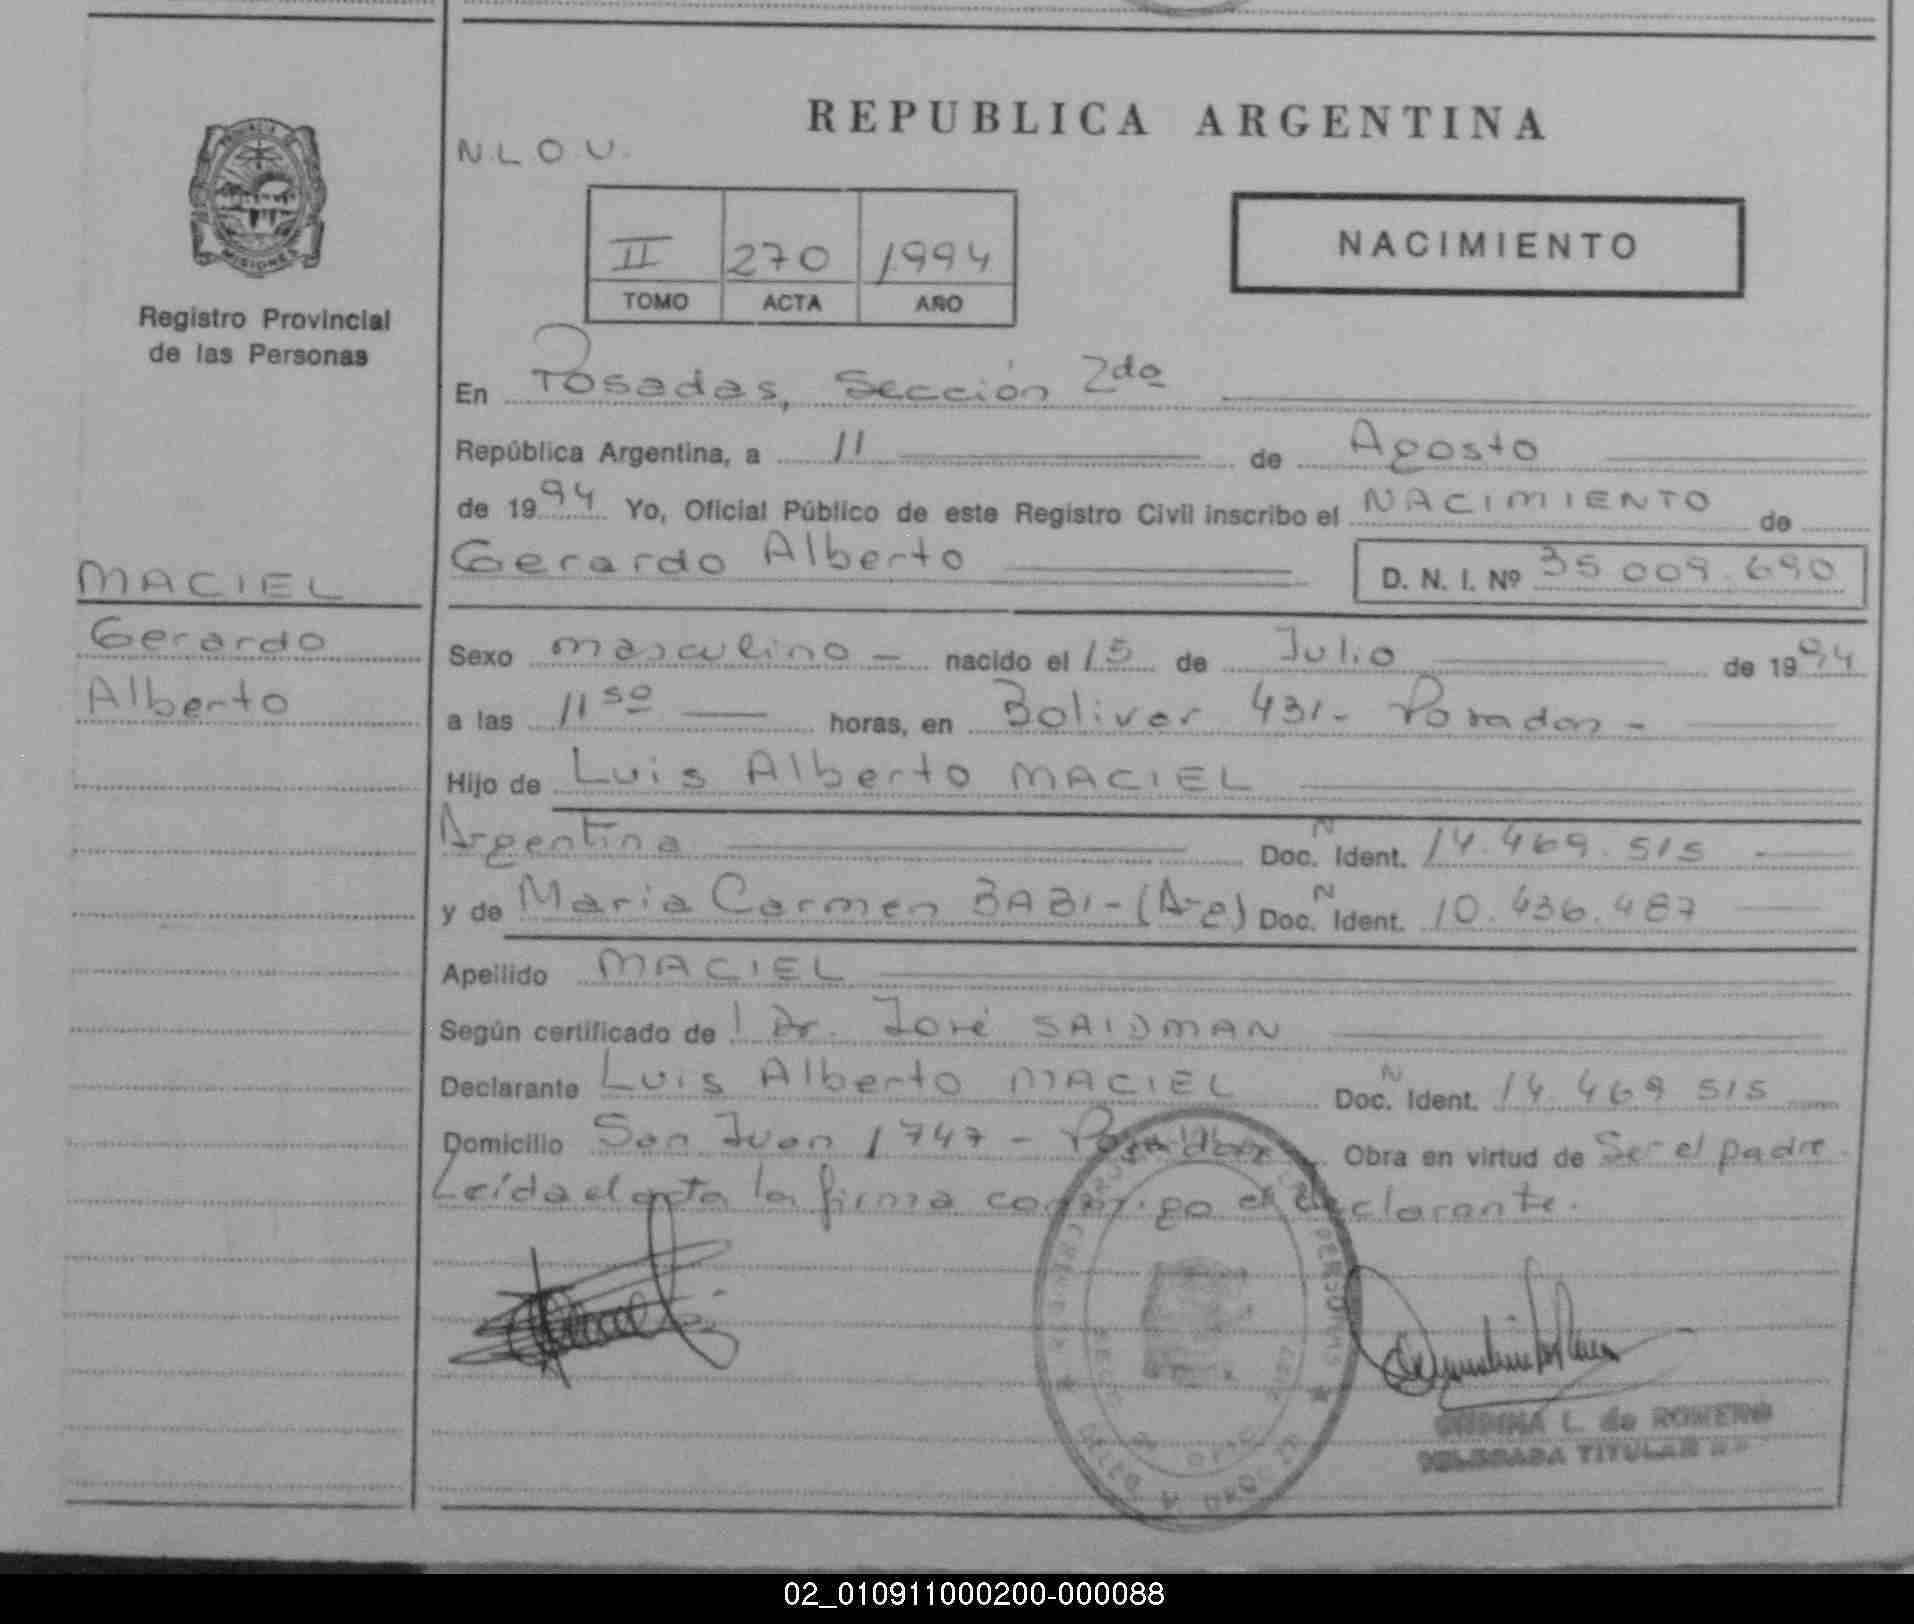 REPUBLICA ARGENTINA
N.L.O.U.
NACIMIENTO
II 270 1994
TOMO ACTA AÑO
PROVINCIA DE MISIONES
Registro Provincial
de las Personas
En Posadas, Sección 2da
República Argentina, a 11 de Agosto
de 1994 Yo, Oficial Público de este Registro Civil inscribo el NACIMIENTO de
Gerardo Alberto D. N. I. Nº 35 009.690
MACIEL
Gerardo
Alberto
Sexo masculino - nacido el 15 de Julio de 1994
a las 11 50 horas, en Bolivar 431 - Posadas -
Hijo de Luis Alberto MACIEL
Argentina Doc. N Ident. 14.469.515
y de Maria Carmen BABI - (Arg) Doc. N Ident. 10.436.487
Apellido MACIEL
Según certificado de l Dr. José SAIDMAN
Declarante Luis Alberto MACIEL Doc. N Ident. 14.469 515
Domicilio San Juan 1747 - Posadas Obra en virtud de Ser el padre.
Leída el acta la firma conmigo el declarante.
PERSONAS
L. de ROMERO
DELEGADA TITULAR
02_010911000200-000088